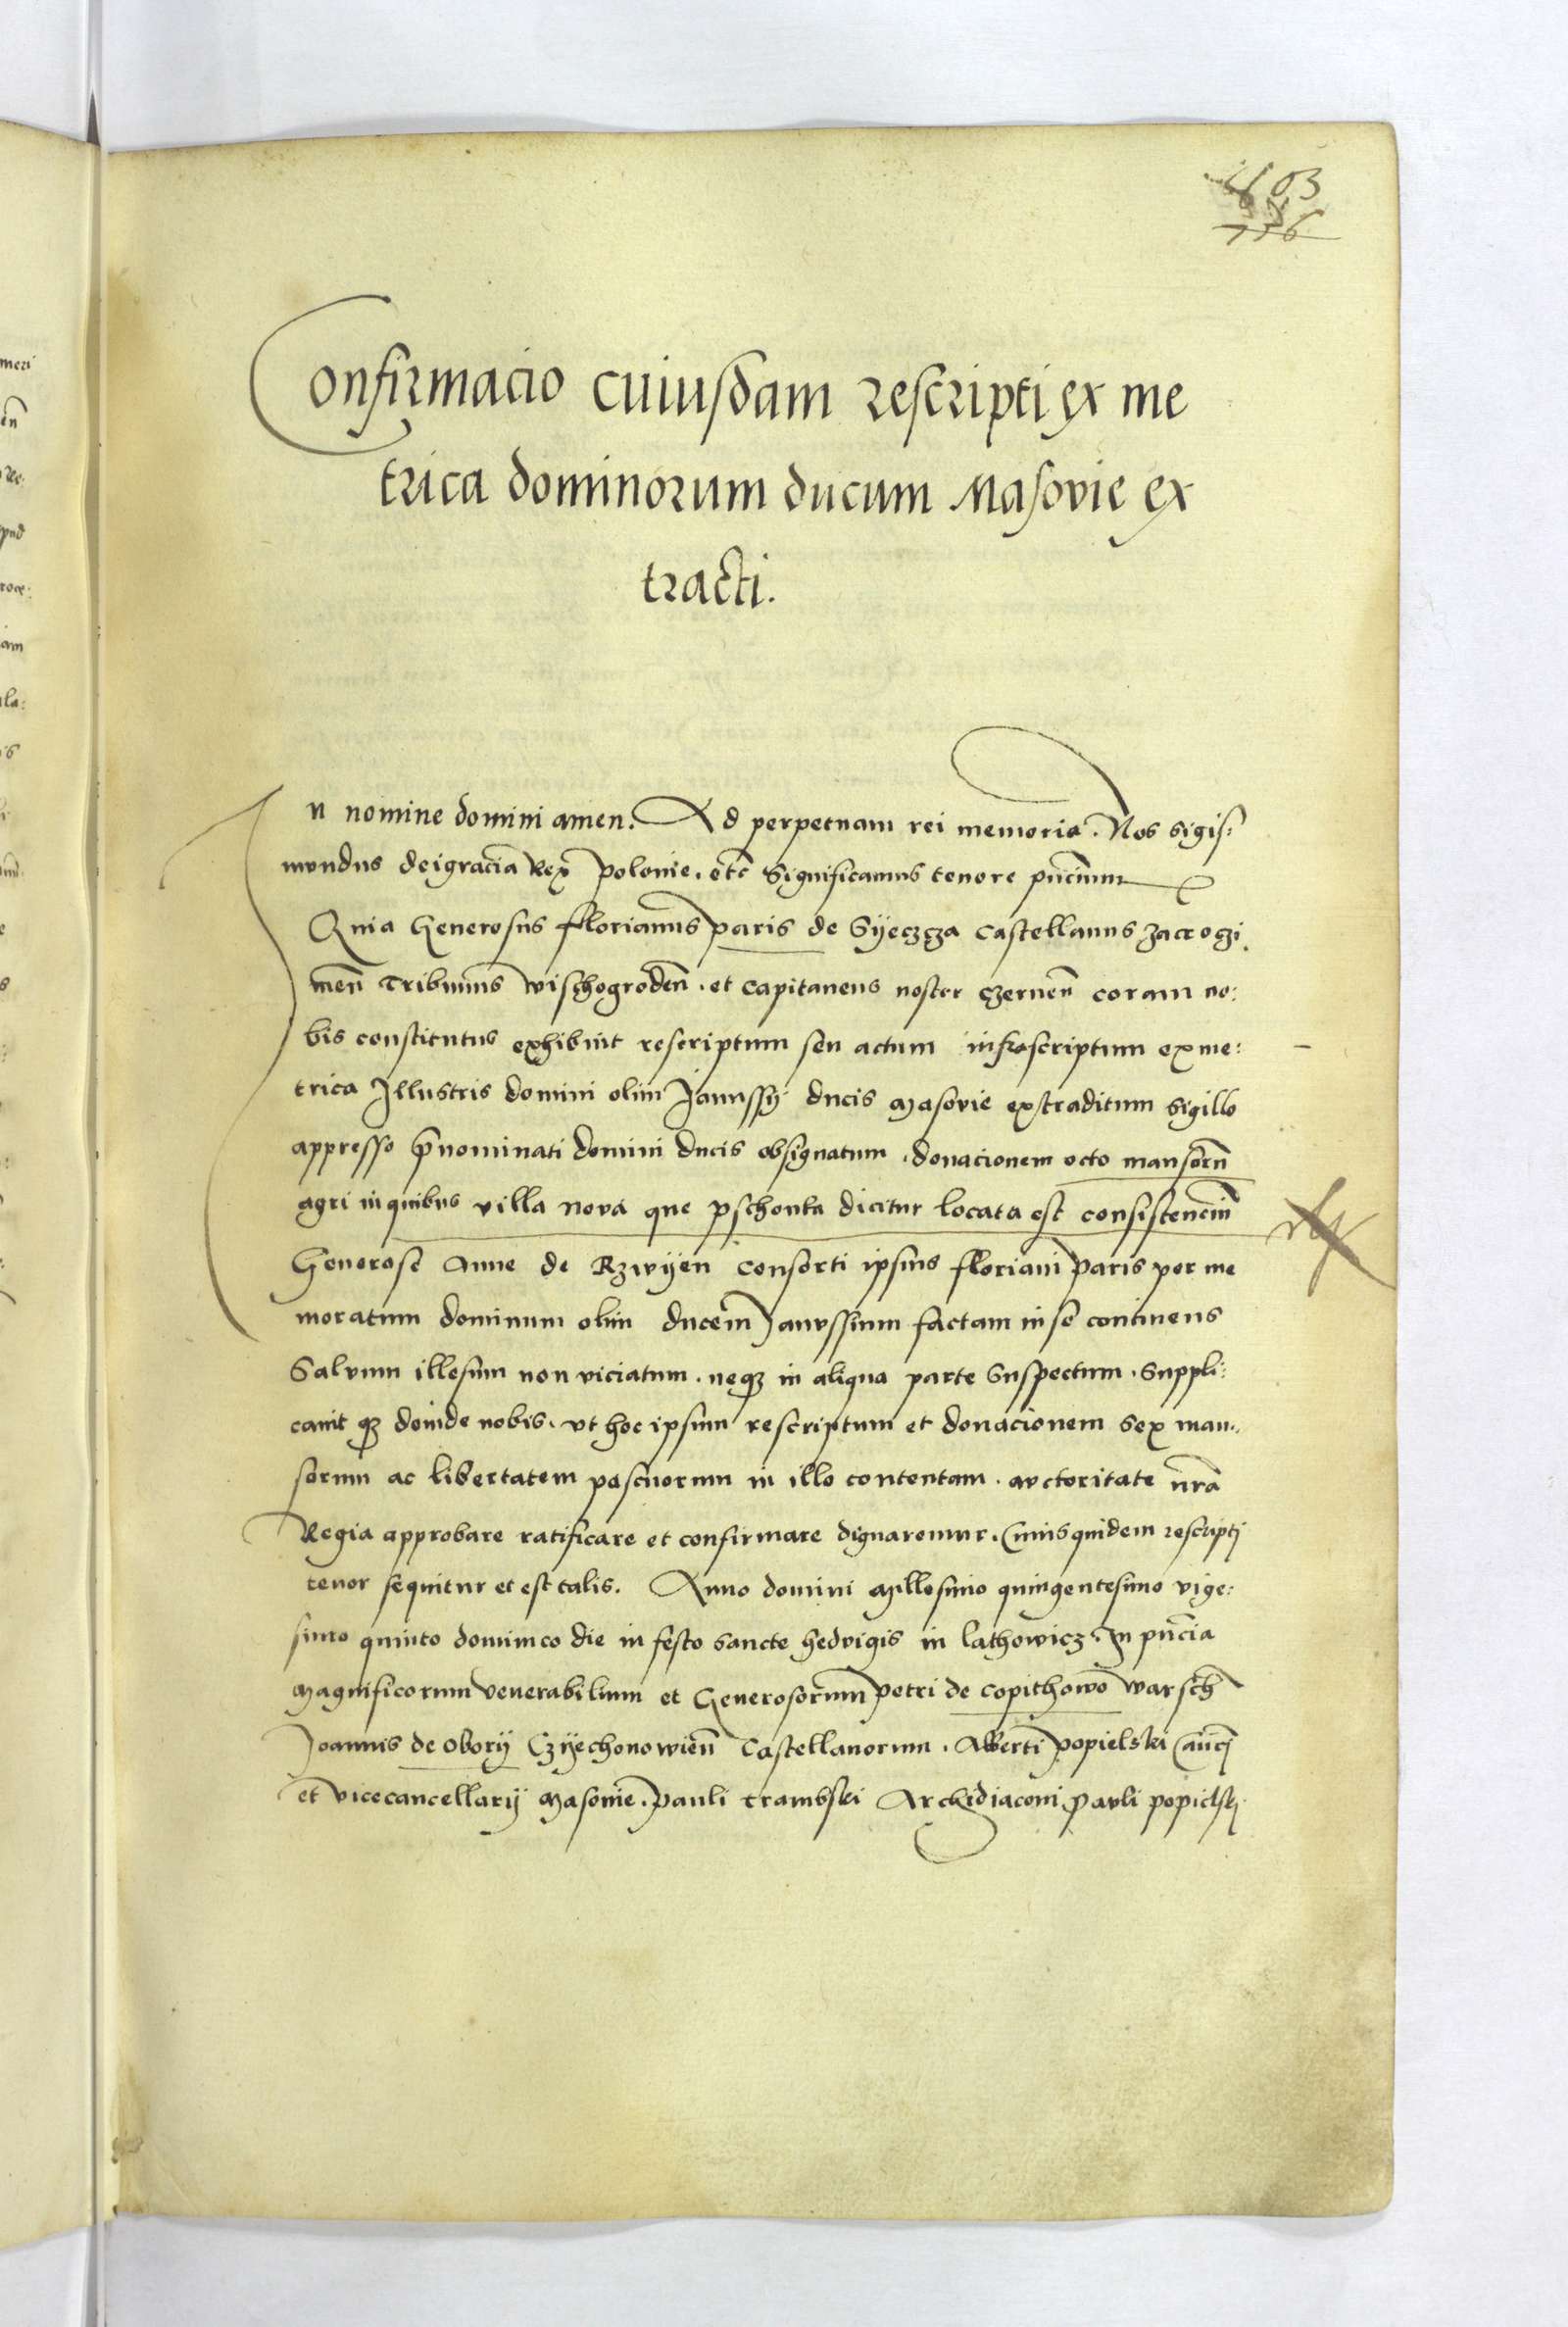 603
Confirmacio cuiusdam rescripti ex me
trica dominorum ducum Masovie ex
tracti.
In nomine domini amen. Ad perpetuam rei memoria. Nos sigis:
mundus dei gracia Rex polonie. etc significamus tenore pñcium
Quia Generosus florianus paris de Syeczcza Castellanus zacroczi
meñ Tribunus wischogrodeñ. et capitaneus noster czerneñ coram no:
bis constitutus exhibuit rescriptum seu actum infrascriptum ex me:
trica Illustris domini olim Janussij ducis masovie extraditum sigillo
appresso p̃nominati domini ducis obsignatum. donacionem octo mansorũ
agri in quibus villa nova que pschonka dicitur locata est consistenciũ
Generose Anne de Rzwyen consorti ipsius floriani paris per me
moratum dominum olim ducem Janussium factam in se continens
Salvum illesum non viciatum. neqȝ in aliqua parte suspectum. suppli:
cavit qȝ deinde nobis. vt hoc ipsum rescriptum et donacionem sex man:
sorum ac libertatem pascuorum in illo contentam. auctoritate nrã
Regia approbare ratificare et confirmare dignaremur. Cuius quidem rescripti
tenor sequitur et est talis. Anno domini millesimo quingentesimo vige:
simo quinto dominico die in festo sancte hedvigis in lathowicz. In pñcia
magnificorum venerabilium et Generosorum petri de copithowo warsch
Joannis de obory Czyechonowieñ Castellanorum. Alberti popielski
et vicecancellarij masovie. pauli trambski Archidiaconi pauli popielski